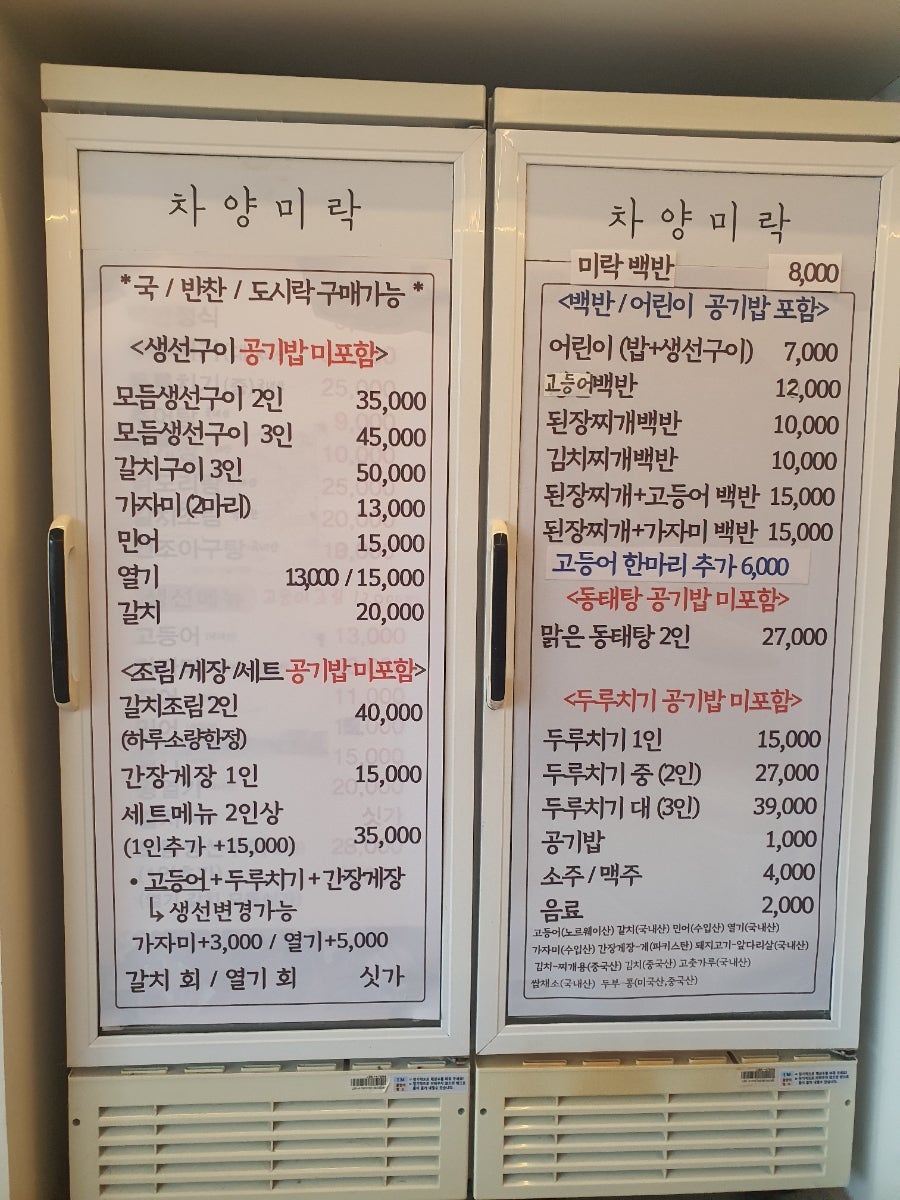 차양미락
*국 / 반찬 / 도시락 구매가능 *
<생선구이 공기밥 미포함>
모듬생선구이 2인 35,000
모듬생선구이 3인 45,000
갈치구이 3인 50,000
가자미 (2마리) 13,000
민어 15,000
열기 13,000 / 15,000
갈치 20,000
<조림/게장/세트 공기밥 미포함>
갈치조림 2인 40,000
(하루소량한정)
간장게장 1인 15,000
세트메뉴 2인상 35,000
(1인추가 +15,000)
• 고등어+두루치기+간장게장
↳ 생선변경가능
가자미+3,000 / 열기+5,000
갈치 회 / 열기 회 싯가
차양미락
미락 백반 8,000
<백반 / 어린이 공기밥 포함>
어린이 (밥+생선구이) 7,000
고등어백반 12,000
된장찌개백반 10,000
김치찌개백반 10,000
된장찌개+고등어 백반 15,000
된장찌개+가자미 백반 15,000
고등어 한마리 추가 6,000
<동태탕 공기밥 미포함>
맑은 동태탕 2인 27,000
<두루치기 공기밥 미포함>
두루치기 1인 15,000
두루치기 중 (2인) 27,000
두루치기 대 (3인) 39,000
공기밥 1,000
소주 / 맥주 4,000
음료 2,000
고등어(노르웨이산) 갈치(국내산) 민어(수입산) 열기(국내산)
가자미(수입산) 간장게장-게(파키스탄) 돼지고기-앞다리살(국내산)
김치-찌개용(중국산) 김치(중국산) 고춧가루(국내산)
쌈채소(국내산) 두부-콩(미국산,중국산)